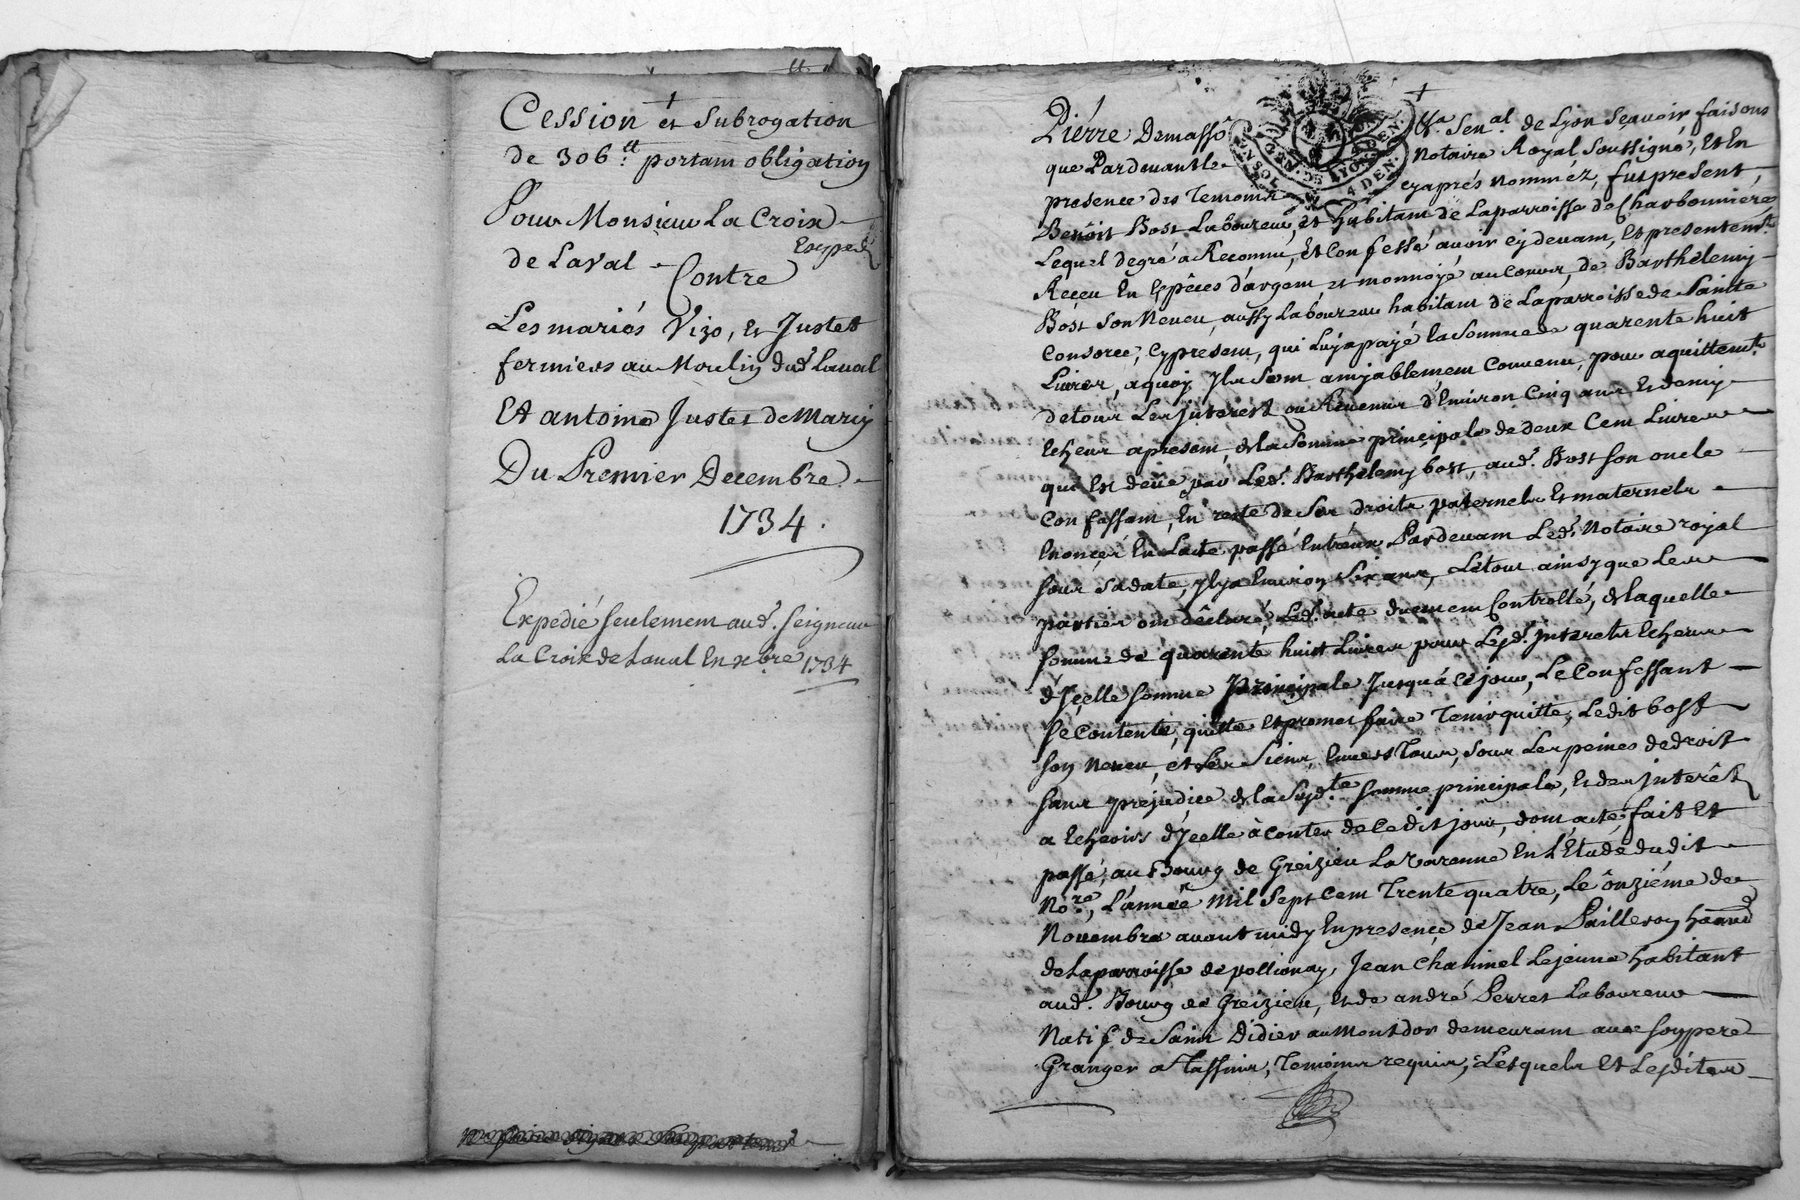 Cession et Subrogation
de 306.tt portam obligation
Pour Monsieur La Croix
de Laval Exped.
Contre
Les mariés Vizo, et Justet
fermiers au Moulin dud. Laval
Et antoine Justet de Marcy
Du Premier Decembre
1734.
Expedié seulement aud. Seigneur
La Croix de Laval En xbre 1734
Pierre Demasso Sen.al de Lyon Sçavoir faisons
que Pardevant le Notaire Royal Soussigné, Et En
presence des Temoins cyaprés nommez, fut present,
Benoist Bost Laboureur, et habitant de Laparroisse de Charbonnieres
Lequel de gré a Reconnu, Et Confessé avoir cy devant, et presentem.t
Reçeu En Espêces d'argent et monnoye au Cours, de Barthelemy
Bost Son Neveu, aussy Laboureur habitant de Laparroisse de Sainte
Consorce, Cypresent, qui Luy a payé la Somme de quarente huit
Livres, a quoy Ils Sont amiablement Convenu, pour aquittem.t
de tous Les Interest ou Revenus d'Environ Cinq ans Et demy
Echeus apresent, de la Somme principale de deux Cent Livres
qui Est deüe par Led. Barthelemy bost, aud. Bost Son oncle
Confessant, En reste de Ses droits paternels Et maternels
Enonçés En Lacte passé Entreux Pardevant Led. Notaire royal
Sous Sa date, Il y a Environ Six ans, Le tout ainsy que Les
parties ont déclaré, Led. acte duement Controllé, de laquelle
Somme de quarente huit Livres pour Lesd. Interets Echeus
d'Içelle Somme Principale Jusqu'a Ce jour, Le Confessant
Se Contente, quitte Et promet faire Tenir quitte, Ledit bost
Son Neveu, et Les Siens Envers Tous, Sous Les peines de droit
Sans préjudice de la Susd.te Somme principale, Et des Interêts
a Echeoirs d'Icelle à Conter de Ce dit jour, dont acte, fait Et
passé, au Bourg de Greizieu La Varenne En L'Etude du dit
No.re, L'année Mil Sept Cent Trente quatre, Le ônziéme de
Novembre avant midy En presençe de Jean Pailleron
de Laparroisse de pollionay, Jean Charmel Le jeune habitant
aud. Bourg de Greizieu, Et de andré Perret Laboureur
Natif de Saint Didier au Mont dor demeurant avec Son pere
Granger a Tassins, Temoins requis, Lesquels Et Lesdites